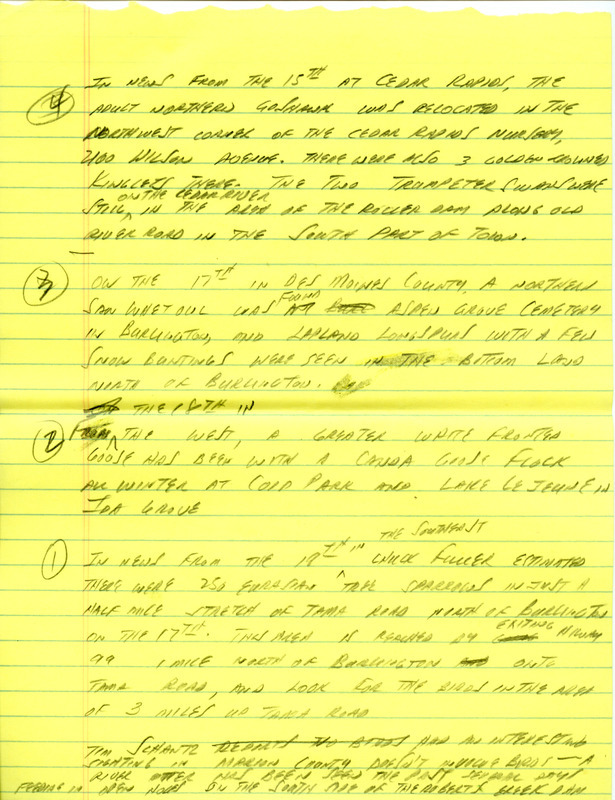 ④ IN NEWS FROM THE 15TH AT CEDAR RAPIDS, THE
ADULT NORTHERN GOSHAWK WAS RELOCATED IN THE
NORTHWEST CORNER OF THE CEDAR RAPIDS NURSERY,
400 WILSON AVENUE. THERE WERE ALSO 3 GOLDEN CROWNED
KINGLETS THERE. THE TWO TRUMPETER SWANS WERE
ON THE CEDAR RIVER
STILL IN THE AREA OF THE ROLLER DAM ALONG OLD
RIVER ROAD IN THE SOUTH PART OF TOWN.
③ ON THE 17TH IN DES MOINES COUNTY, A NORTHERN
SAW WHET OWL WAS FOUND ASPEN GROVE CEMETERY
IN BURLINGTON, AND LAPLAND LONGSPURS WITH A FEW
SNOW BUNTINGS WERE SEEN IN THE BOTTOM LAND
NORTH OF BURLINGTON.
THE 18TH IN
② FROM THE WEST, A GREATER WHITE FRONTED
GOOSE HAS BEEN WITH A CANDA GOOSE FLOCK
ALL WINTER AT COBB PARK AND LAKE LEJEUNE IN
IDA GROVE
THE SOUTHEAST
① IN NEWS FROM THE 19TH IN CHUCK FULLER ESTIMATED
THERE WERE 250 EURASIAN TREE SPARROWS IN JUST A
HALF MILE STRETCH OF TAMA ROAD NORTH OF BURLINGTON
ON THE 17TH. THIS AREA IS REACHED BY EXITING HIGHWAY
99 1 MILE NORTH OF BURLINGTON ONTO
TAMA ROAD, AND LOOK FOR THE BIRDS IN THE AREA
OF 3 MILES UP TAMA ROAD
TIM SCHANTZ REPORTS NO BIRDS HAD AN INTERESTING
SIGHTING IN MARION COUNTY DOESN'T INVOLVE BIRDS — A
RIVER OTTER HAS BEEN SEEN THE PAST SEVERAL DAYS
FEEDING IN OPEN WATER ON THE SOUTH SIDE OF THE ROBERTS CREEK DAM